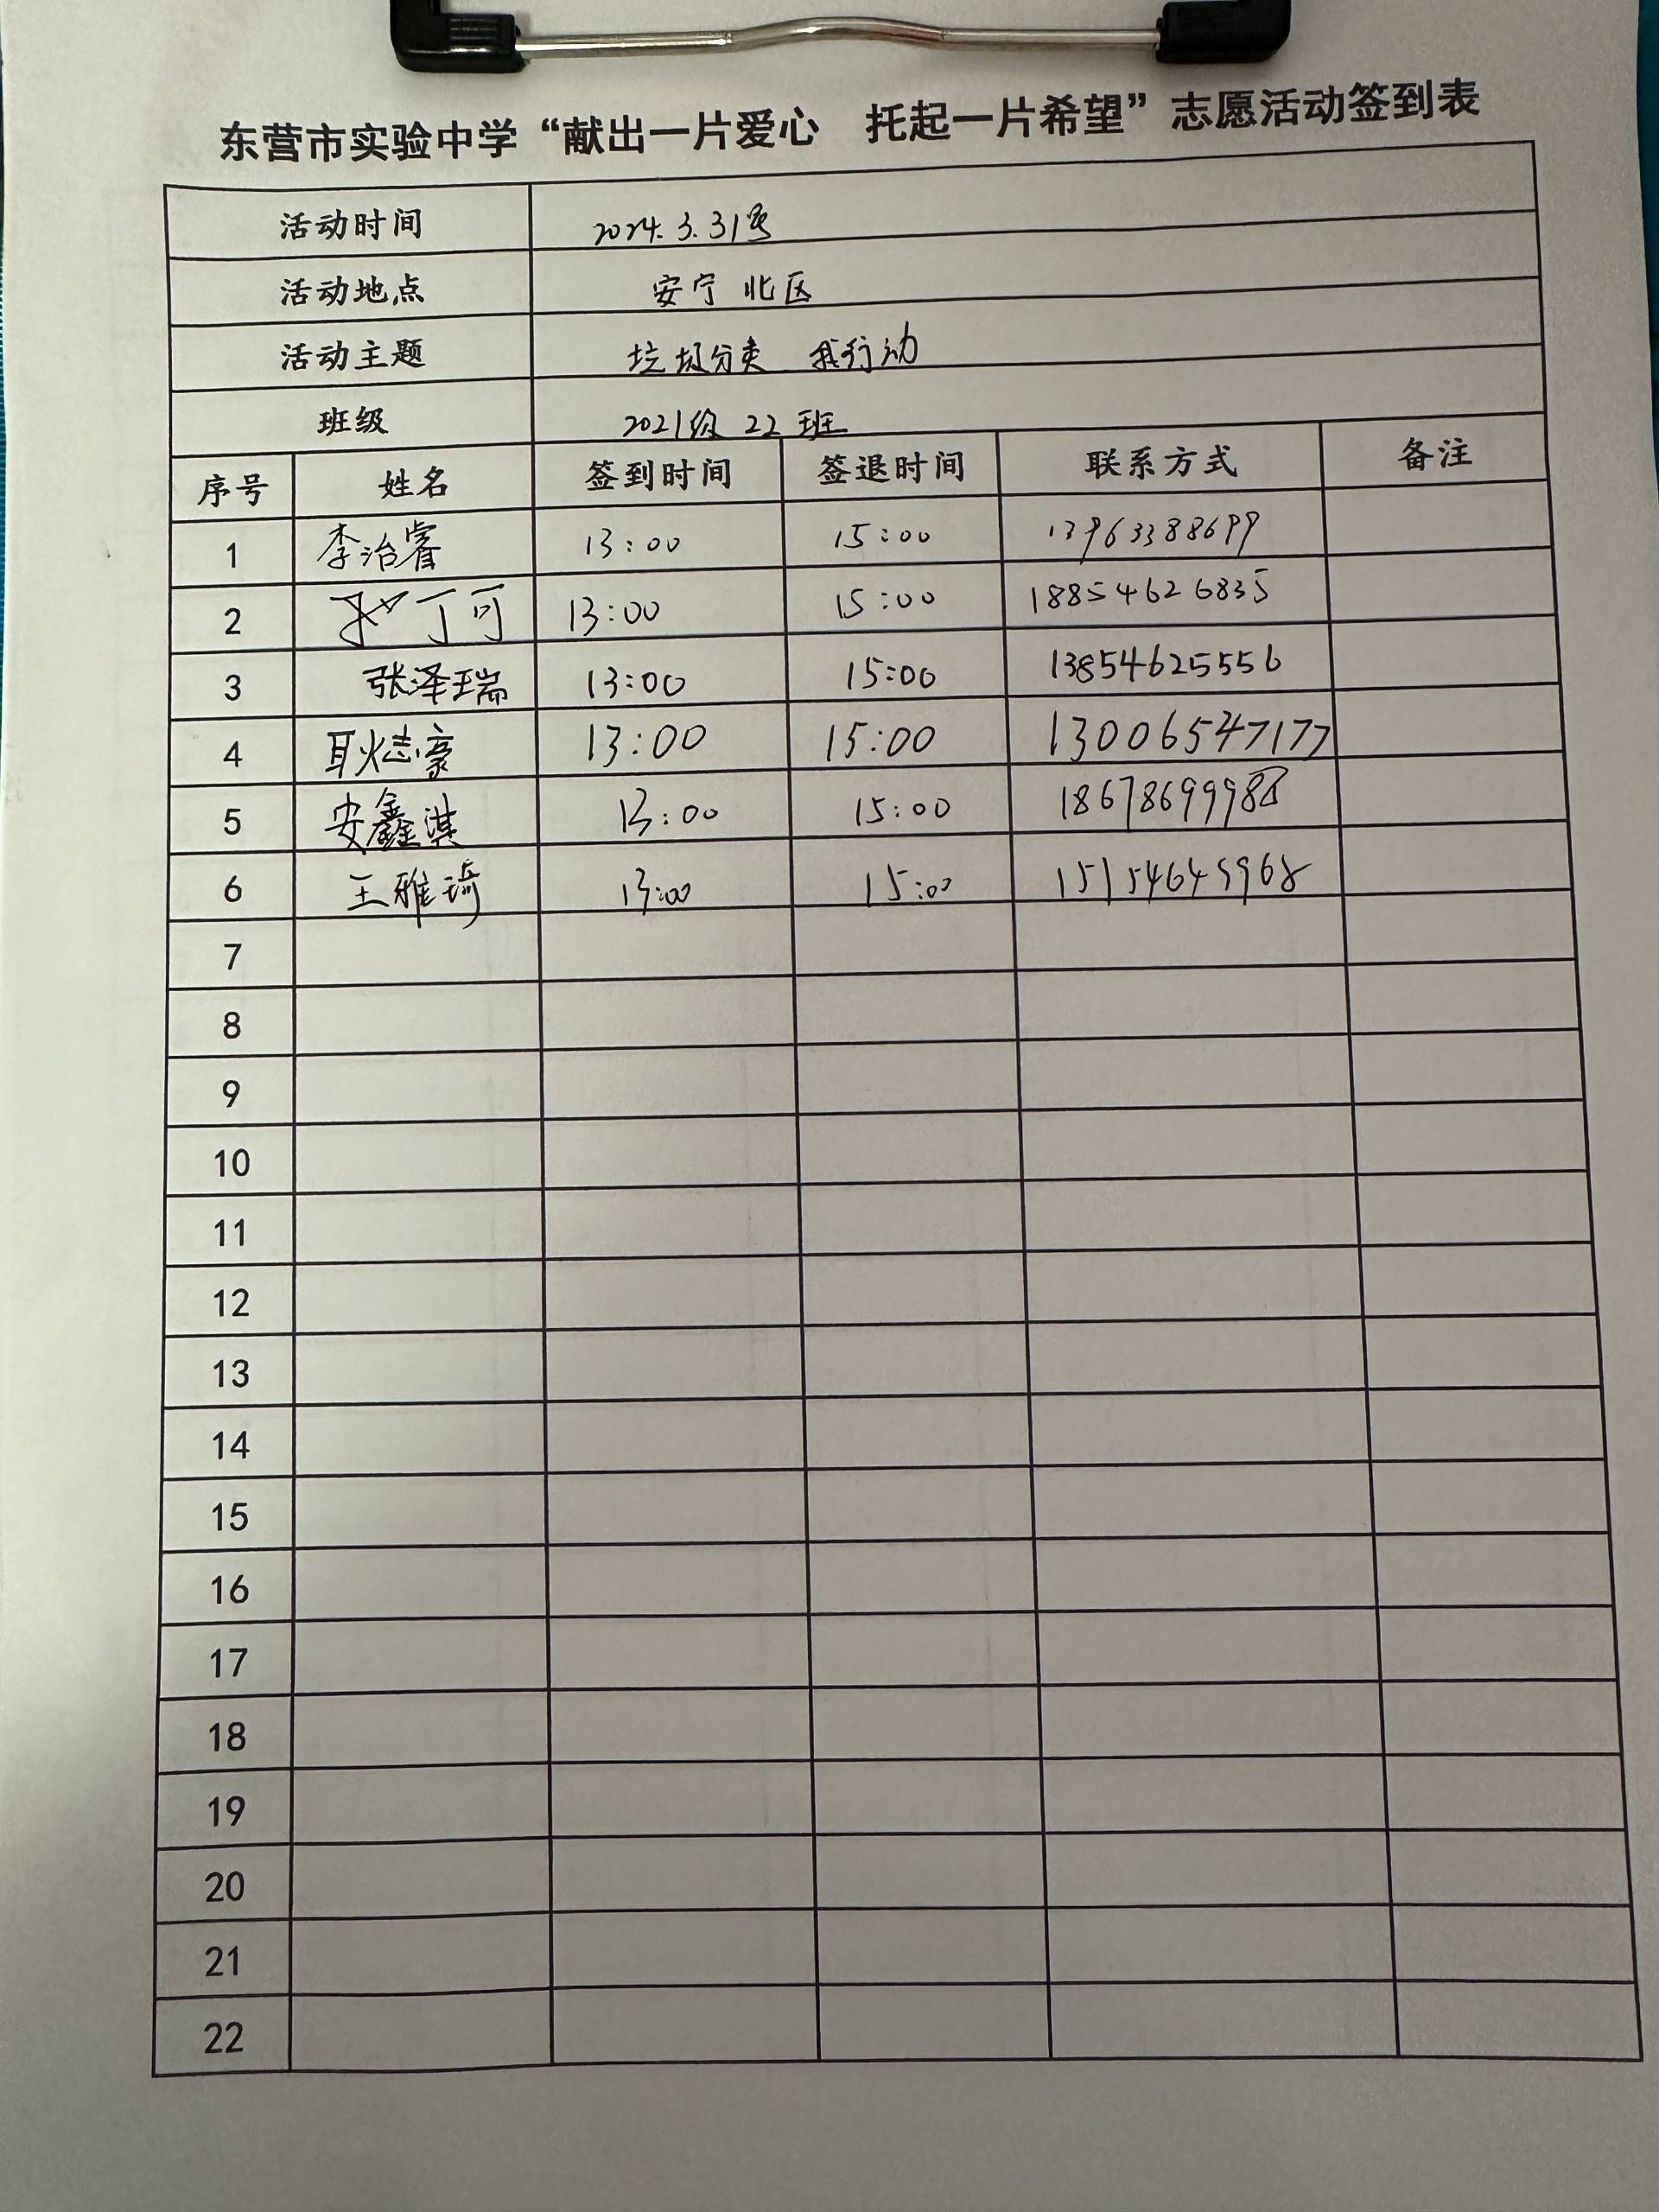 东营市实验中学“献出一片爱心 托起一片希望”志愿活动签到表
活动时间 2024.3.31号
活动地点 安宁北区
活动主题 垃圾分类 我行动
班级 2021级 22班
序号 姓名 签到时间 签退时间 联系方式 备注
1 李治睿 13:00 15:00 13963388699
2 丁可 13:00 15:00 18854626835
3 张泽瑞 13:00 15:00 13854625556
4 耿志豪 13:00 15:00 13006547177
5 安鑫淇 13:00 15:00
6 王雅琦 13:00 15:00 15154645968
7
8
9
10
11
12
13
14
15
16
17
18
19
20
21
22